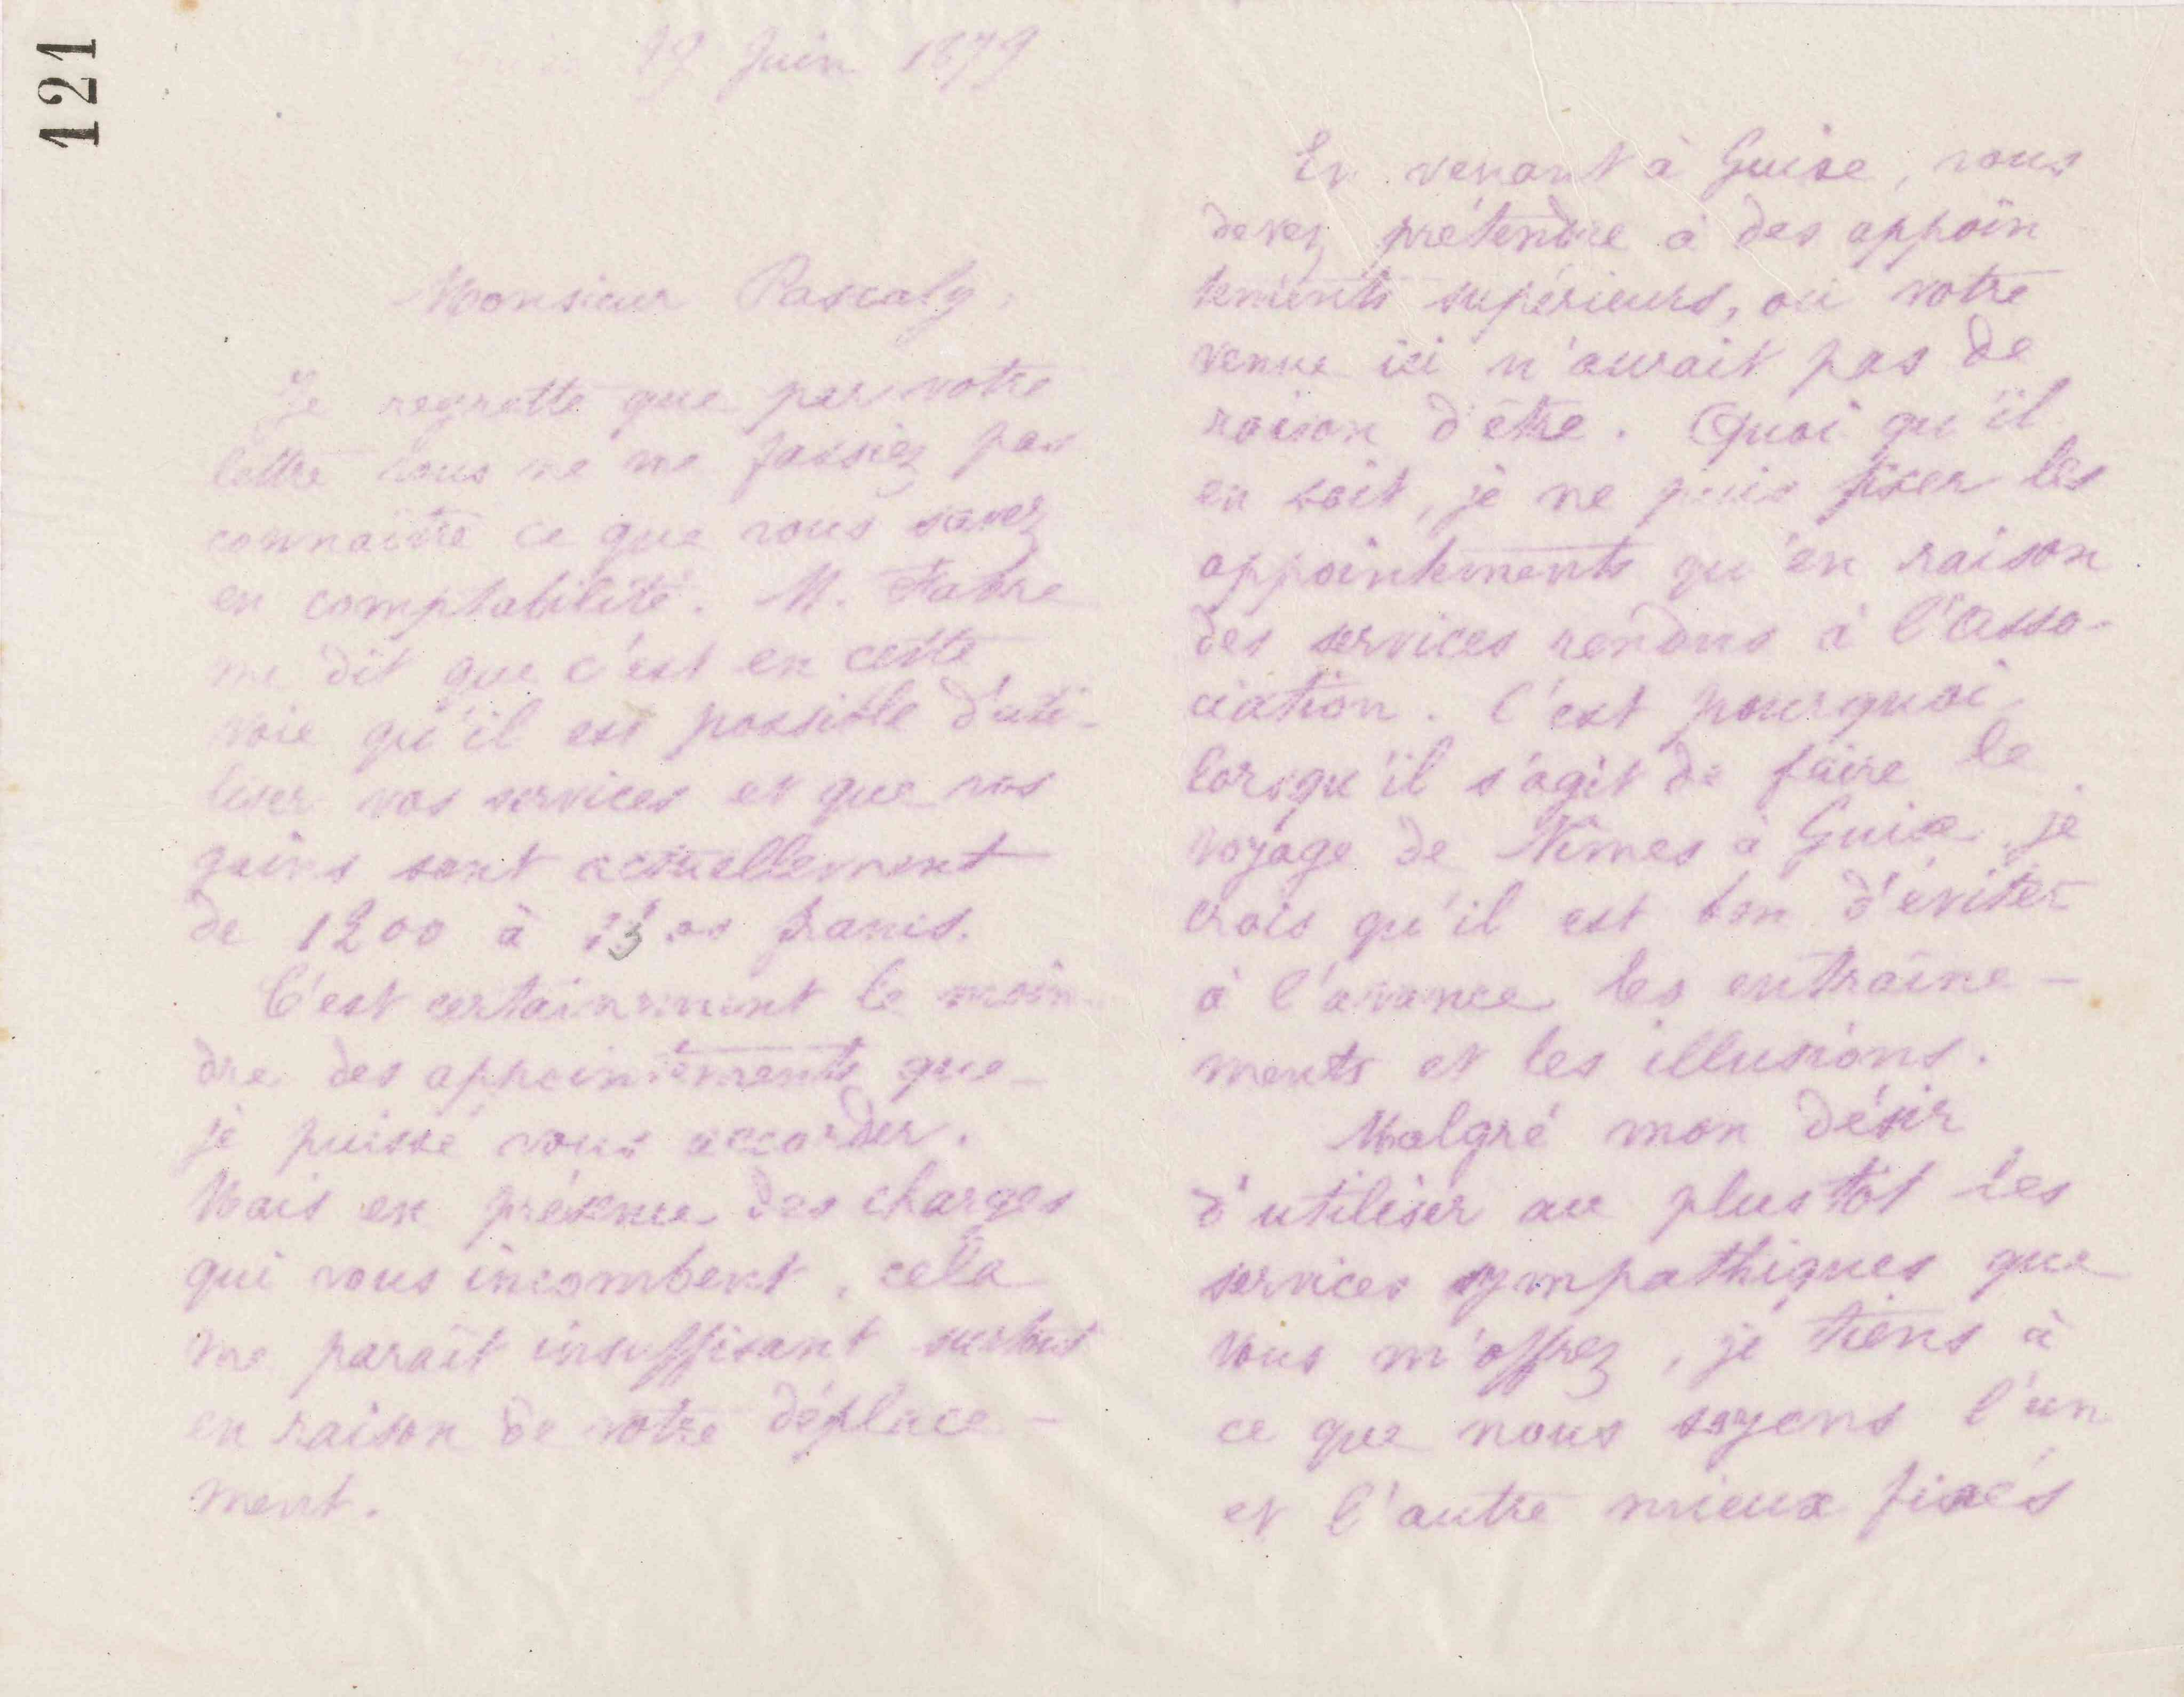 121
Juin 1879
Monsieur Pascaly,
Je regrette que par votre
lettre vous ne me fassiez pas
connaître ce que vous savez
en comptabilité. M. Fabre
me dit que c'est en cette
voie qu'il est possible d'uti-
liser vos services et que vos
gains sont actuellement
de 1200 à francs.
C'est certainement le moin
dre des appointements que
je puisse vous accorder.
Mais en présence des charges
qui vous incombent, cela
me parait insuffisant surtout
en raison de votre déplace-
ment.
En venant à Guise, vous
devez prétendre à des appoin
tements supérieurs, ou votre
venue ici n'aurait pas de
raison d'être. Quoi qu'il
en soit, je ne puis fixer les
appointements qu'en raison
des services rendus à l'asso-
ciation. C'est pourquoi,
lorsqu'il s'agit de faire le
voyage de Nîmes à Guise, je
crois qu'il est bon d'éviter
à l'avance les entraîne-
ments et les illusions.
Malgré mon désir
d'utiliser au plus tôt les
services sympathiques que
vous m'offrez, je tiens à
ce que nous soyons l'un
et l'autre mieux fixés